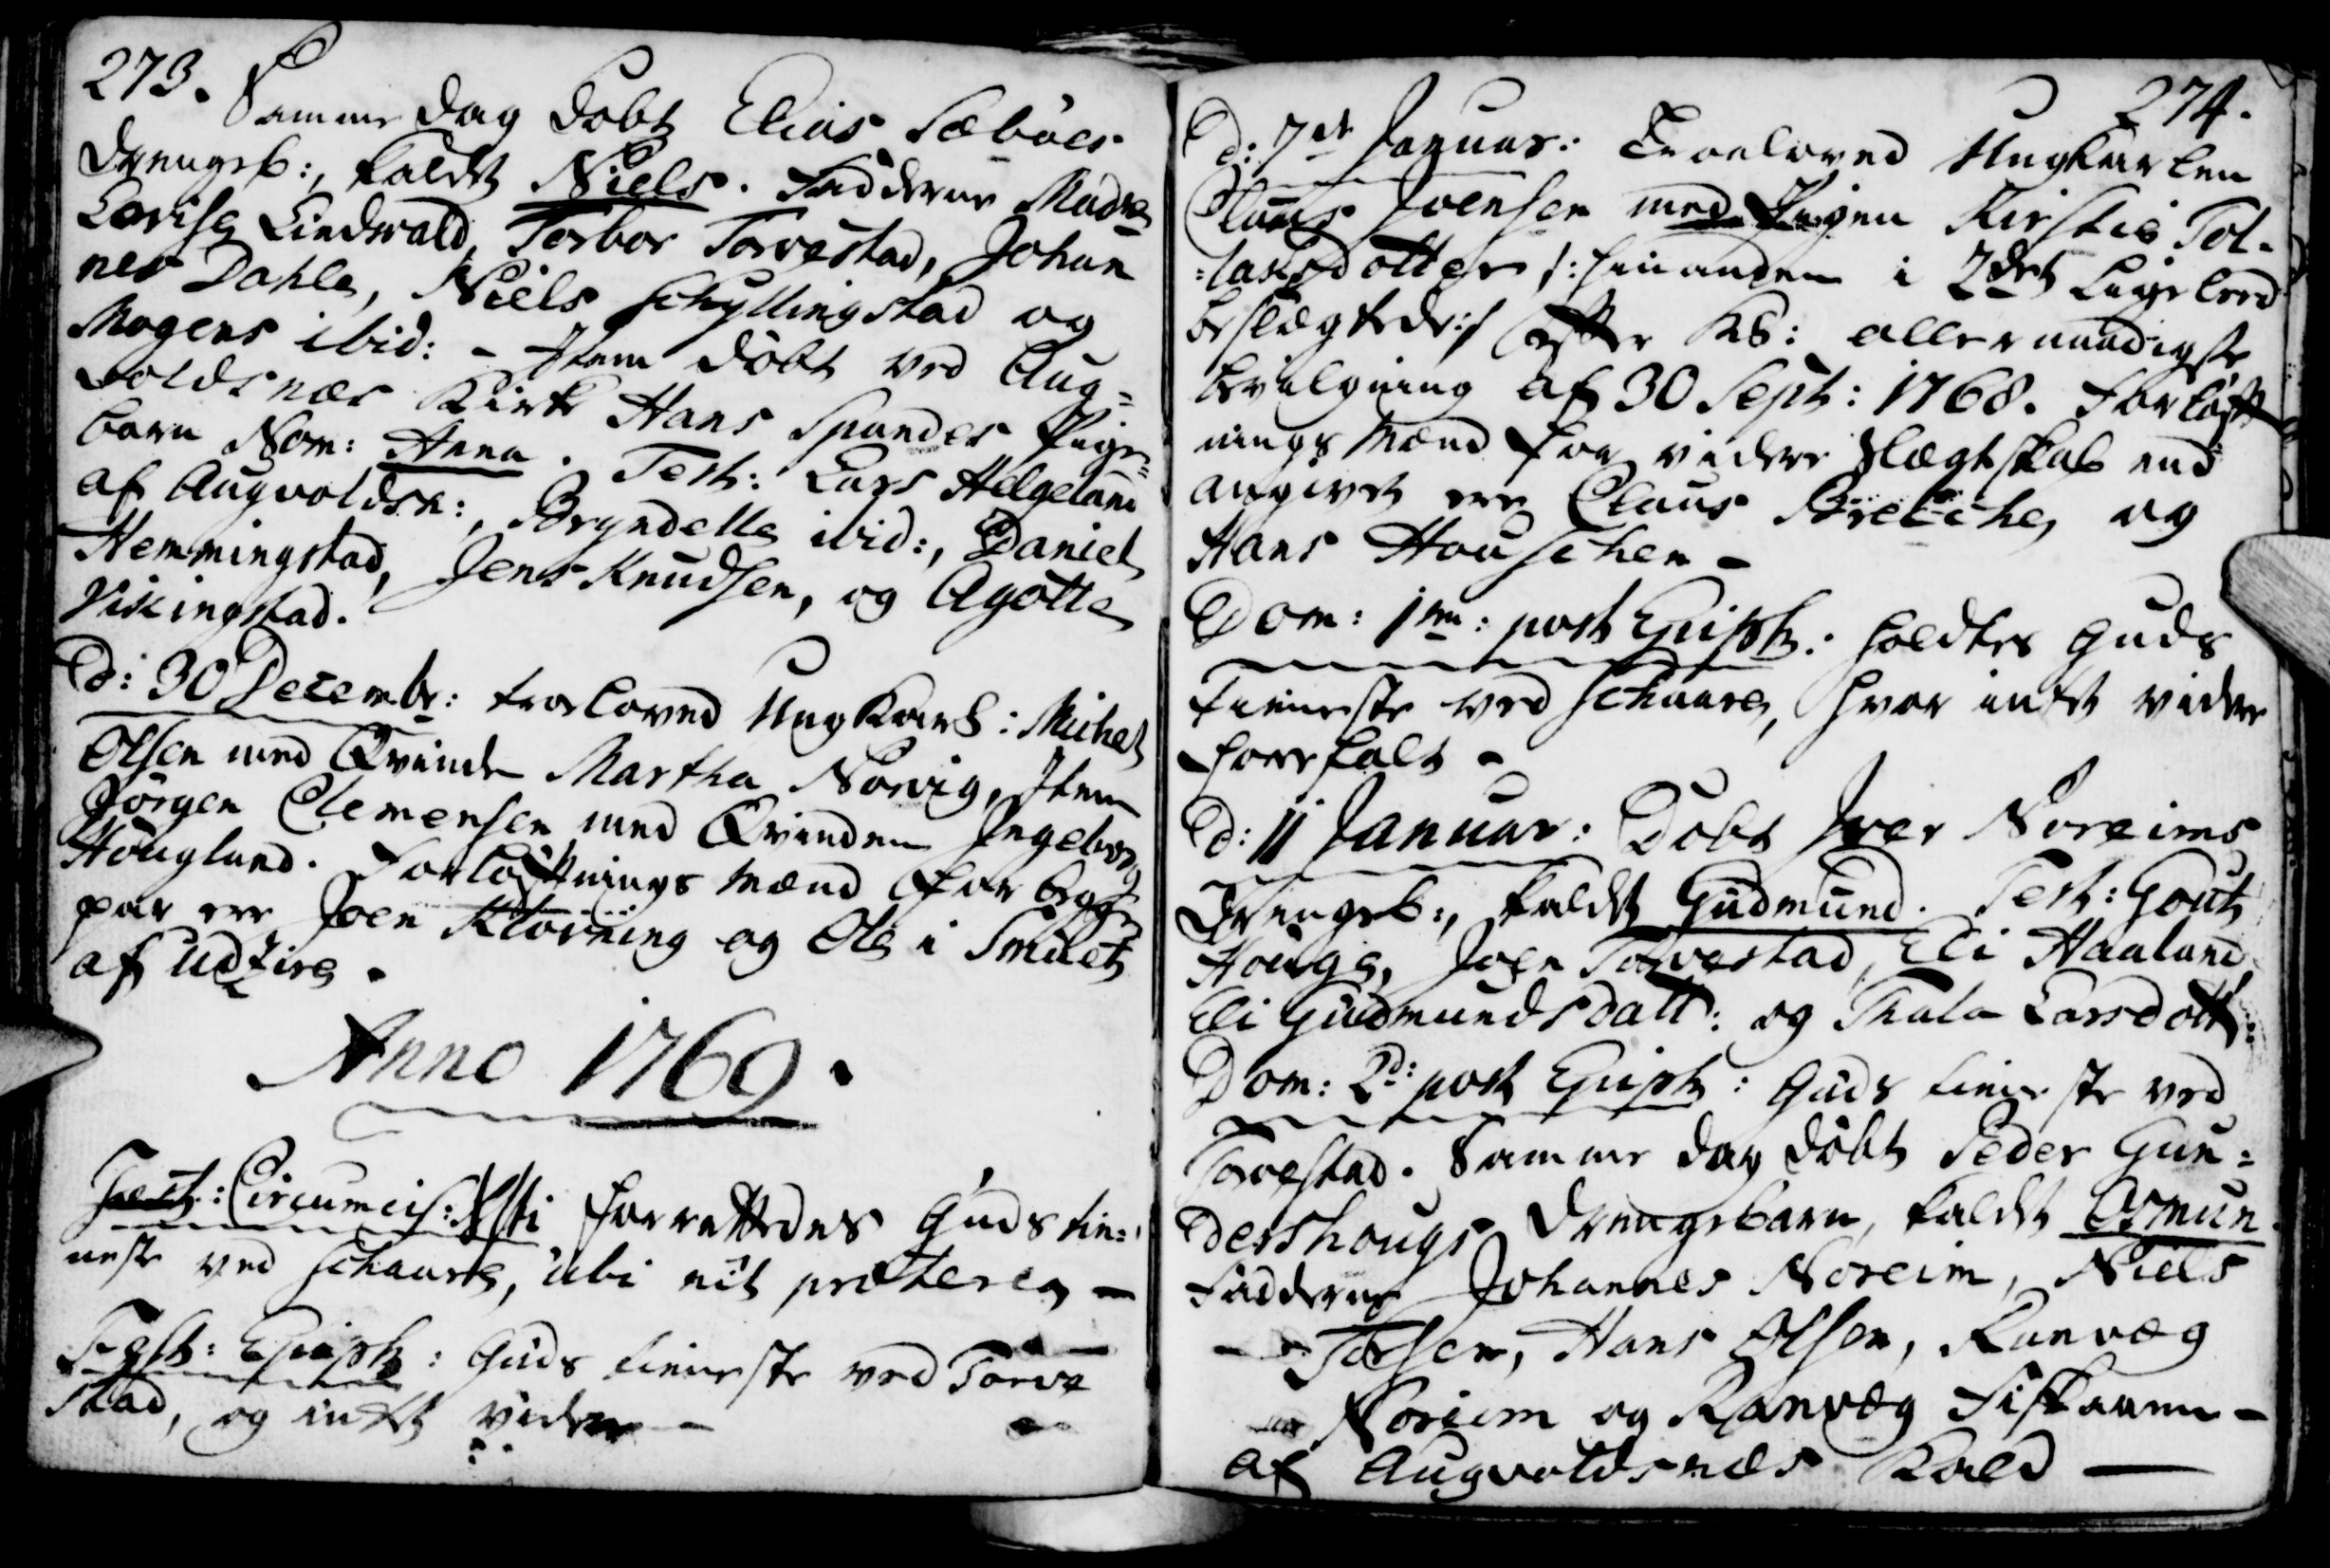 273.
Samme dag döbt Elias Sæböes
drengeb:, kaldt Niels. Fadderne Mad.
Lovise Lindwald, Torbor Torvestad, Johan
nes Dahle, Niels Schyllingstad og
Mogens ibid: - Item döbt ved Aug=
voldsnæs Kirke Hans Spandes Pige=
barn Nom: Anna. Test: Lars Helgeland
af Augvoldsn:, Bryndelle ibid:, Daniel
Hemmingstad, Jens Knudsen, og Agotte
Vikingstad.
D: 30 Decembr: troloved Ungkarl: Michel
Olsen med Qvinde Martha Norvig, Item
Jörgen Clemensen med Qvinden Ingeborg
Hougland. Forlöftnings Mænd for begge
par ere Joen Klovning og Ole i
af Udzire.
Anno 1769.
Fest: Circumcis: Xsti forrettedes Guds tie=
neste ved Schaare, ubi nil præterea -
Fest: Epiph: Guds tieneste ved Torve
stad, og intet videre -
274.
D: 7de Januar: Troeloved Ungkarlen
Claus Joensen med Pigen Kirstie Tol-
:laksdotter /: hinanden i 2det Lige leed
beslægtede:/ efter KS: allernaadigste
bevilgning af 30 Sept: 1768. Forlöft
nings Mænd for videre Slægtskab end
angivet ere Claus og
Hans Houschen -
Dom: 1ma: post Epiph: holdtes Guds
tieneste ved Schaare, hvor intet videre
forefalt -
D: 11 Januar: Döbt Iver Noreims
Drengeb:, kaldt Gudmund. Test: Gout
Houge, Joen Torvestad, Eli Haaland,
Eli Gudmundsdatt: og Thala Larsdott:
Dom: 2d: post Epiph: Guds tieneste ved
Torvestad. Samme dag döbt Peder Gun=
dershougs Drengebarn, kaldt Osmun.
Fadderne Johannes Noreim, Niels
Torsen, Hans Olsen, Ranvæg
Noreim og Ranvæg Fiskaaen -
af Augvoldsnæs Kald —